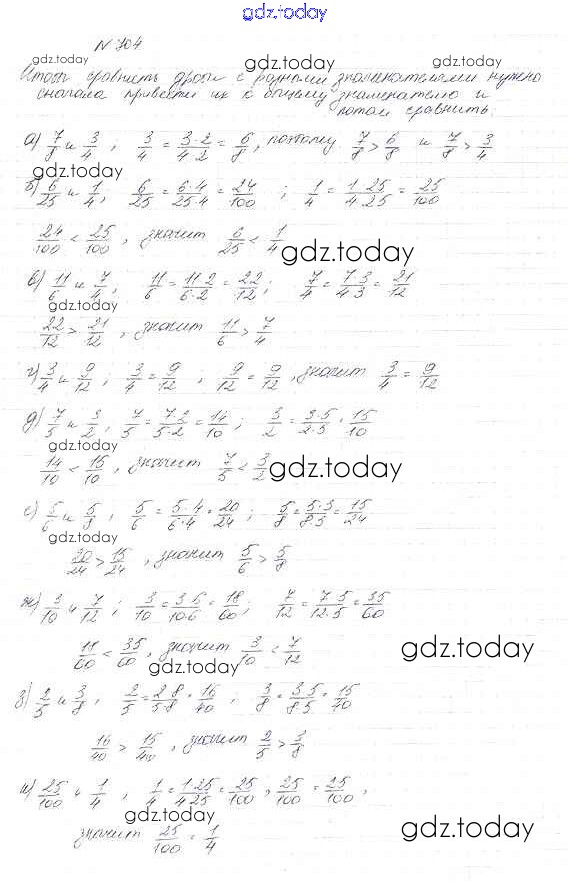 gdz.today
№ 704
gdz.today gdz.today gdz.today
Чтобы сравнить дроби с разными знаменателями нужно
сначала привести их к общему знаменателю и
потом сравнить.
а) 7/8 и 3/4, 3/4 = 3·2/4·2 = 6/8, поэтому 7/8 > 6/8 и 7/8 > 3/4
gdz.today
б) 6/25 и 1/4, 6/25 = 6·4/25·4 = 24/100 ; 1/4 = 1·25/4·25 = 25/100
24/100 < 25/100, значит 6/25 < 1/4
gdz.today
в) 11/6 и 7/4, 11/6 = 11·2/6·2 = 22/12; 7/4 = 7·3/4·3 = 21/12
gdz.today
22/12 > 21/12, значит 11/6 > 7/4
г) 3/4 и 9/12 ; 3/4 = 9/12 ; 9/12 = 9/12, значит 3/4 = 9/12
д) 7/5 и 3/2, 7/5 = 7·2/5·2 = 14/10 ; 3/2 = 3·5/2·5 = 15/10
gdz.today
14/10 < 15/10, значит 7/5 < 3/2
gdz.today
е) 5/6 и 5/8, 5/6 = 5·4/6·4 = 20/24; 5/8 = 5·3/8·3 = 15/24
gdz.today
20/24 > 15/24, значит 5/6 > 5/8
ж) 3/10 и 7/12 ; 3/10 = 3·6/10·6 = 18/60, 7/12 = 7·5/12·5 = 35/60
11/60 < 35/60, значит 3/10 < 7/12
gdz.today gdz.today
з) 2/5 и 3/8, 2/5 = 2·8/5·8 = 16/40 ; 3/8 = 3·5/8·5 = 15/40
16/40 > 15/40, значит 2/5 > 3/8
и) 25/100 и 1/4, 1/4 = 1·25/4·25 = 25/100, 25/100 = 25/100,
gdz.today gdz.today
значит 25/100 = 1/4